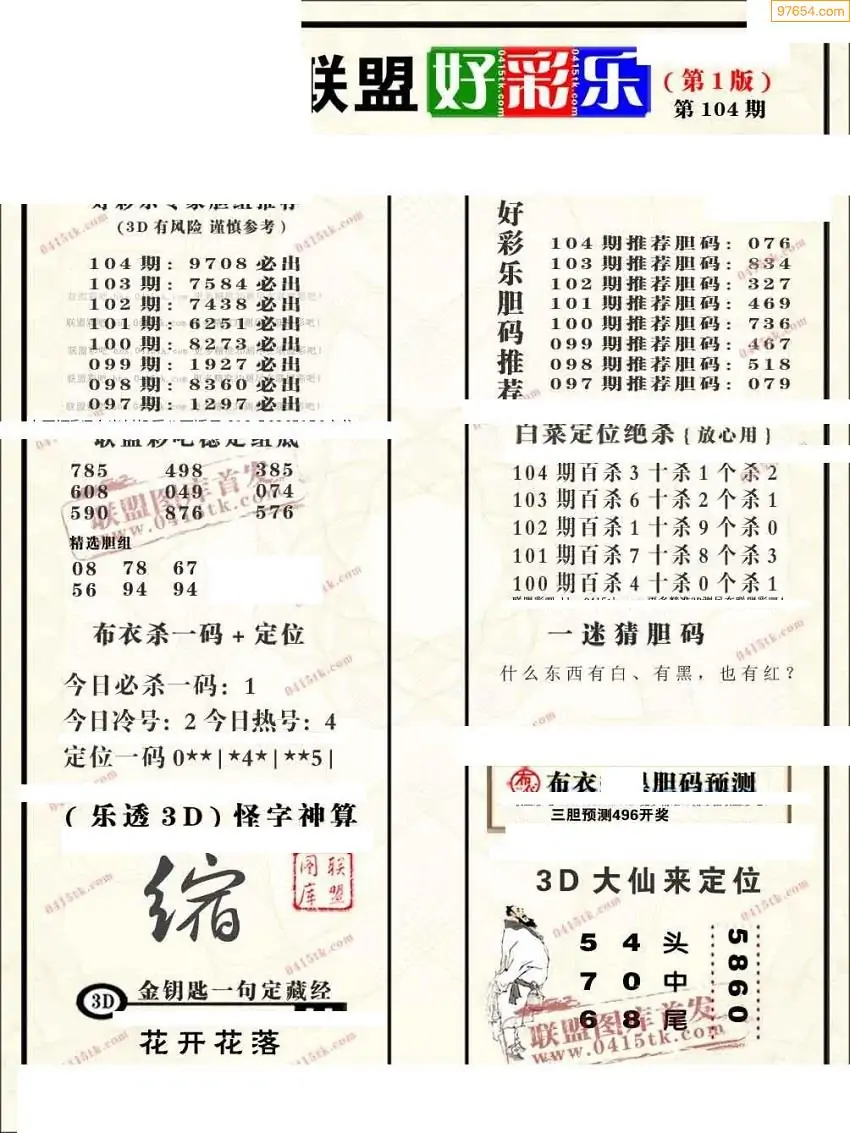 97654.com
联盟好彩乐
(第1版)
第104期
0415tk.com
(3D有风险 谨慎参考)
104期：9708必出
103期：7584必出
102期：7438必出
101期：6251必出
100期：8273必出
099期：1927必出
098期：8360必出
097期：1297必出
好彩乐胆码推荐
104期推荐胆码：076
103期推荐胆码：834
102期推荐胆码：327
101期推荐胆码：469
100期推荐胆码：736
099期推荐胆码：467
098期推荐胆码：518
097期推荐胆码：079
785 498 385
608 049 074
590 876 576
精选胆组
08 78 67
56 94 94
联盟图库首发
www.0415tk.com
白菜定位绝杀{放心用}
104期百杀3十杀1个杀2
103期百杀6十杀2个杀1
102期百杀1十杀9个杀0
101期百杀7十杀8个杀3
100期百杀4十杀0个杀1
布衣杀一码+定位
今日必杀一码：1
今日冷号：2 今日热号：4
定位一码0**|*4*|**5|
一迷猜胆码
什么东西有白、有黑，也有红？
(乐透3D)怪字神算
缩
联盟图库
布衣
胆码预测
三胆预测496开奖
3D 金钥匙一句定藏经
花开花落
3D大仙来定位
5 4 头
7 0 中
6 8 尾
5860
联盟图库首发
www.0415tk.com